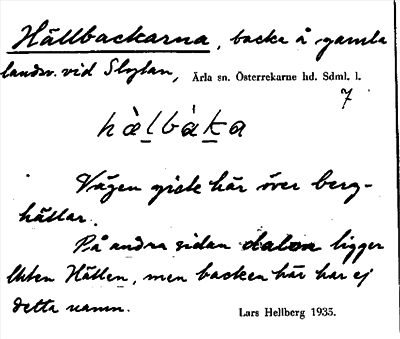 Hällbackarna, backe å gamla
landsv. vid Slytan, Ärla sn. Österrekarne hd. Sdml. l.
7
hàlbàka
Vägen gick här över berg-
hällar.
På andra sidan dalen ligger
Hällen, men backen här har ej
detta namn.
Lars Hellberg 1935.